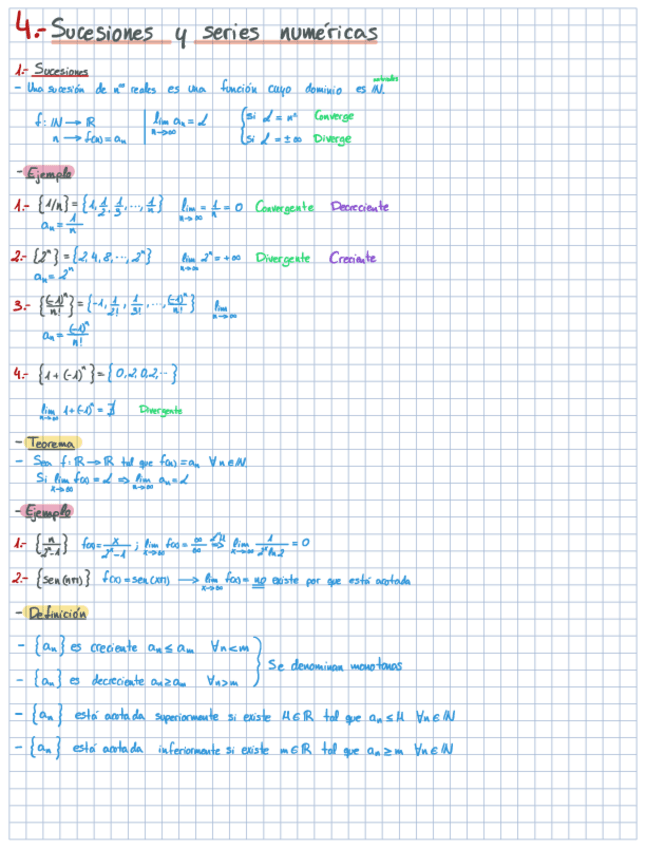 4.- Sucesiones y series numéricas
1.- Sucesiones
- Una sucesión de nºs reales es una función cuyo dominio es ℕ. naturales
f: ℕ → ℝ | lim n→∞ aₙ = L { si L = nº Converge
n → f(n) = aₙ | { si L = ±∞ Diverge
- Ejemplo
1.- {1/n} = {1, 1/2, 1/3, ..., 1/n} lim n→∞ = 1/n = 0 Convergente Decreciente
aₙ = 1/n
2.- {2ⁿ} = {2, 4, 8, ..., 2ⁿ} lim n→∞ 2ⁿ = +∞ Divergente Creciente
aₙ = 2ⁿ
3.- {(-1)ⁿ/n!} = {-1, 1/2!, 1/3!, ..., (-1)ⁿ/n!} lim n→∞
aₙ = (-1)ⁿ/n!
4.- {1 + (-1)ⁿ} = {0, 2, 0, 2, ...}
lim n→∞ 1 + (-1)ⁿ = ∄ Divergente
- Teorema
- Sea f: ℝ → ℝ tal que f(n) = aₙ ∀n ∈ ℕ
Si lim x→∞ f(x) = L ⇒ lim n→∞ aₙ = L
- Ejemplo
1.- {n/2ⁿ-1} f(x) = x/2ˣ-1 ; lim x→∞ f(x) = ∞/∞ ⇒ lim x→∞ 1/2ˣ ln 2 = 0
2.- {sen(nπ)} f(x) = sen(xπ) → lim x→∞ f(x) = no existe por que está acotada
- Definición
- {aₙ} es creciente aₙ ≤ aₘ ∀n < m
} Se denominan monotonas
- {aₙ} es decreciente aₙ ≥ aₘ ∀n > m
- {aₙ} está acotada superiormente si existe M ∈ ℝ tal que aₙ ≤ M ∀n ∈ ℕ
- {aₙ} está acotada inferiormente si existe m ∈ ℝ tal que aₙ ≥ m ∀n ∈ ℕ